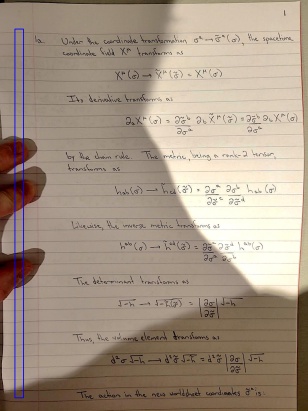 1
1a. Under the coordinate transformation σᵃ → σ̃ᵃ(σ), the spacetime
coordinate field Xᵘ transforms as
Xᵘ(σ) → X̃ᵘ(σ̃) = Xᵘ(σ)
Its derivative transforms as
∂ₐXᵘ(σ) = ∂σ̃ᵇ/∂σᵃ ∂̃_b X̃ᵘ(σ̃) = ∂σ̃ᵇ/∂σᵃ ∂̃_b Xᵘ(σ)
by the chain rule. The metric, being a rank-2 tensor,
transforms as
h_ab(σ) → h̃_cd(σ̃) = ∂σᵃ/∂σ̃ᶜ ∂σᵇ/∂σ̃ᵈ h_ab(σ)
Likewise, the inverse metric transforms as
hᵃᵇ(σ) → h̃ᶜᵈ(σ̃) = ∂σ̃ᶜ/∂σᵃ ∂σ̃ᵈ/∂σᵇ hᵃᵇ(σ)
The determinant transforms as
√-h → √-h̃(σ̃) = |∂σ/∂σ̃| √-h
Thus, the volume element transforms as
d²σ √-h → d²σ̃ √-h̃ = d²σ̃ |∂σ/∂σ̃| √-h
The action in the new worldsheet coordinates σ̃ᵃ is: